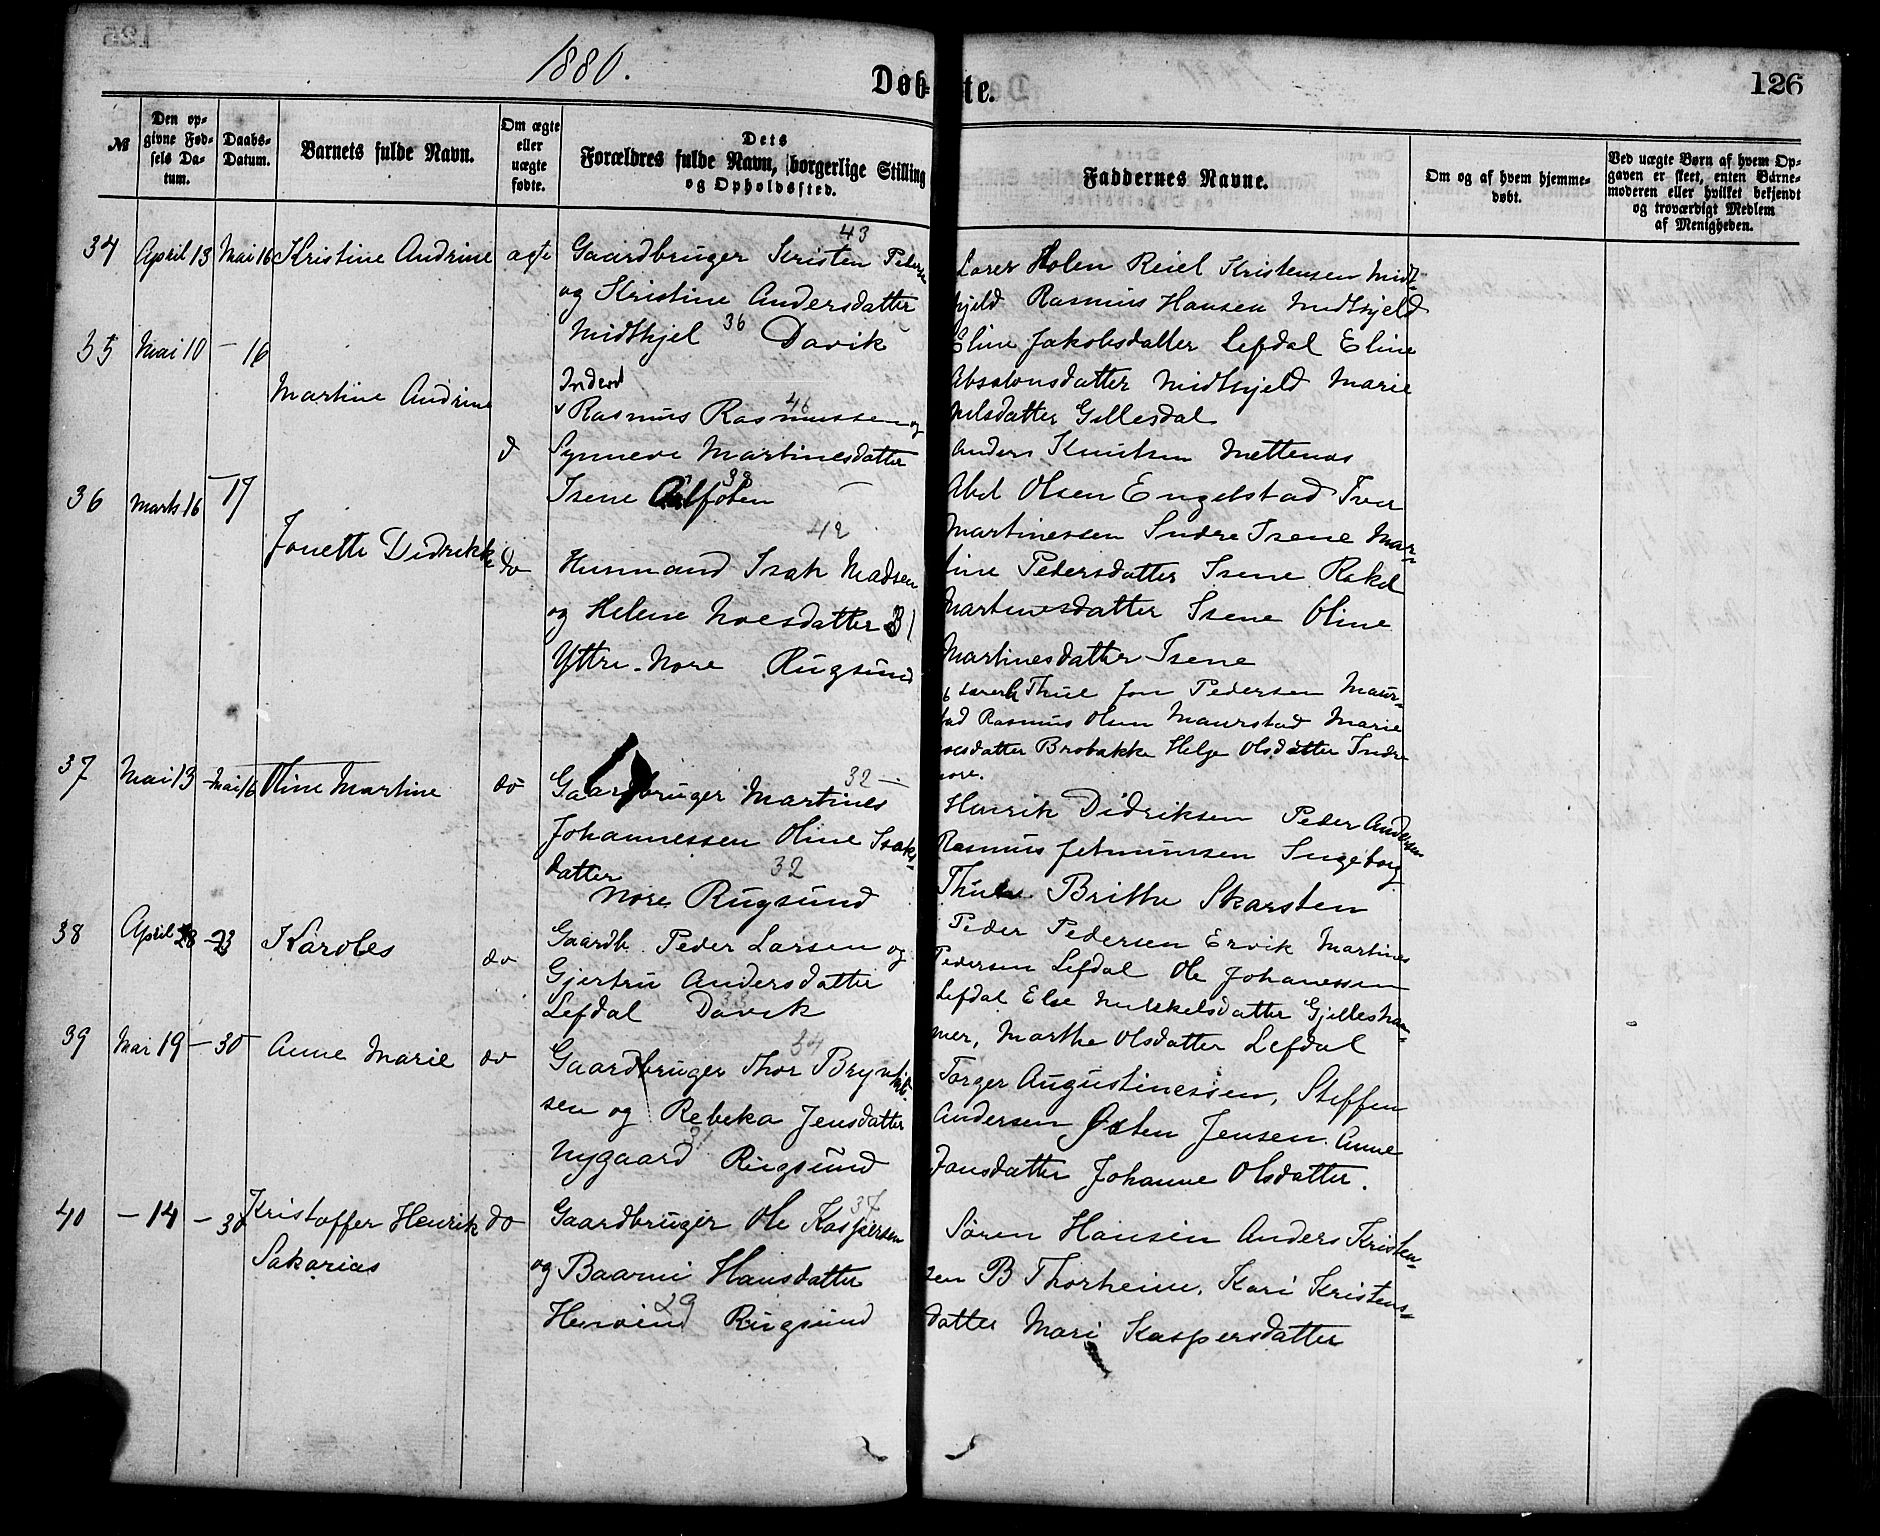 1880.
Døb-
te.
126
№
Den op-
givne Fød-
sels Da-
tum.
Daabs-
Datum.
Barnets fulde Navn.
Om ægte
eller
uægte
fødte.
Dets
Forældres fulde Navn, borgerlige Stilling
og Opholdssted.
Faddernes Navne.
Om og af hvem hjemme-
døbt.
Ved uægte Børn af hvem Op-
gaven er skeet, enten Barne-
moderen eller hvilket bekjendt
og troværdigt Medlem
af Menigheden.
34 April 13 Mai 16 Kristine Andrine ægte
43
Gaardbruger Kristen Peders
og Kristine Andersdatter
Midthjel 36 Davik
Holen Reiel Kristensen Midt-
hjeld Rasmus Hansen Midthjeld
Eline Jakobsdatter Lefdal Eline
Absalonsdatter Midthjeld Marie
Nilsdatter Gillesdal
35 Mai 10 - 16
Martine Andrine d
Inderst
46
Rasmus Rasmussen og
Synneve Martinesdatter
39
Isene Aalfoten
Anders Knutsen Mettenes
Abel Olsen Engelstad Iver
Martinessen Indre Isene Mar-
tine Pedersdatter Isene Rakel
Martinesdatter Isene Oline
Martinesdatter Isene
36 Marts 16 - 17
Jonette Didrikke do
42
Husmand Isak Madsen
og Helene Noesdatter 31
Yttre-Nore Rugsund
Thue Jon Pedersen Maur-
stad Rasmus Olsen Maurstad Marie
Brobakke Helge Olsdatter Indre
nore.
37 Mai 13 - Mai 16 Oline Martine do
32
Gaardbruger Martines
Johannessen Oline Isaks-
datter
32
Nore Rugsund
Henrik Didriksen Peder Andersen
Rasmus Jetmundsen Ingeborg
Thue Brithe Skarsten
38 April 28 - 23 Karoles do
Gaardb. Peder Larsen og
Gjertru Andersdatter
33
Lefdal Davik
Peder Pedersen Ervik Martines
Pedersen Lefdal Ole Johanessen
Lefdal Else Mikkelsdatter Gjellesham-
mer, Marthe Olsdatter Lefdal
39 Mai 19 - 30 Anne Marie do
34
Gaardbruger Thor Brynhild-
sen og Rebeka Jensdatter
31
Nygaard Rugsund
Torger Augustinessen, Steffen
Andersen Østen Jensen. Anne
Jansdatter Johanne Olsdatter.
40 - 14 - 30 Kristoffer Henrik do
Sakarias
37
Gaardbruger Ole Kaspersen
og Baarni Hansdatter
29
Hennind Rugsund
Søren Hansen Anders Kristen-
sen B Thorheim, Kari Kristens-
datter Mari Kaspersdatter